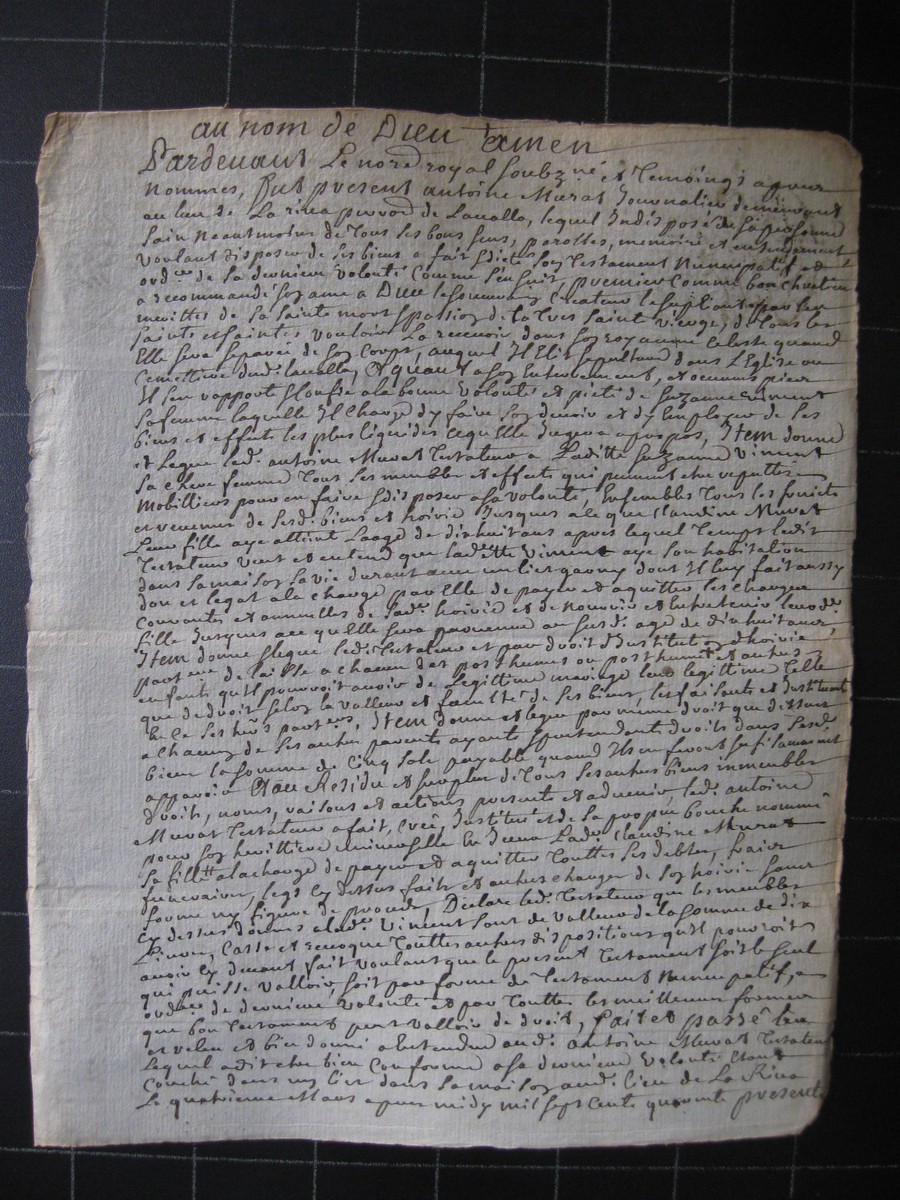 au nom de Dieu amen
Pardevant Le no.re royal soubz.né et Temoings apres
nommes, fut present antoine Murat Journalier demeurant
au lieu de La riva parroe de Lavalla, lequel Indisposé de sa personne
sain neantmoins de Tous ses bons sens, parolles, memoire et entendement
voulant disposer de ses biens a fait son Testament Nuncupatif et
ord.ce de sa derniere volonté comme s'ensuit, premier comme bon chretien
a recommandé son ame a Dieu le souverain Createur le supliant par les
merittes de sa sainte mort passion de la tres sainte vierge, de Tous les
saints et saintes vouloir La recevoir dans son royaume celeste quand
Elle sera separée de son corps, auquel Il Elit sepulture dans L'Eglise ou
Cemettiere dud. lavalla, Et quant a son Enterrement, et œuvres pies
Il s'en rapporte et confie a la bonne volonté et pieté de Suzanne Viment
sa femme laquelle Il charge d'y faire son devoir et d'y Employer de ses
biens et effets les plus liquides ce qu'elle Jugera apropos, Item donne
et legue led. antoine Murat Testateur a Laditte Suzanne Viment
sa chere femme Tous ses meubles et effets qui peuvent etre reputtés
Mobilliers pour en faire et disposer a sa volonté, Ensembles Tous les fruicts
et revenus de sesd. biens et hoirie Jusques a ce que Claudine Murat
Leur fille aye atteint Laage de dixhuit ans apres lequel Temps ledit
Testateur veut et entend que lad.tte Viment aye son habitation
dans sa maison sa vie durant avec un liet garny dont Il luy fait aussy
don et legat a la charge par Elle de payer et aquitter les charges
courantes et annuelles de lad. hoirie et de nourrir et Entretenir leurd.
fille Jusques a ce quelle sera parvenue au susd. age de dixhuit ans,
Item donne et legue led. Testateur et par droit d'Institution d'hoirie
a chacun des posthumes ou posthumes et autres
enfants qu'Il pourroit avoir de Legittime mariage leur legittime Telle
que de droit selon la valleur et faculté de ses biens, les faisants et Instituant
ses her.s part.ers, Item donne et legue par même droit que dessus
a chacun de ses autres parents ayants et pretendants droits dans sesd.
biens la somme de cinq sols payable quand Ils en feront suffisamment
apparoir Et au Residu et surplus de Tous ses autres biens immeubles
droits, noms, raisons et actions presents et advenir led. antoine
Murat Testateur a fait, Creé, Institué et de sa propre bouche nommé
pour son herittiere universelle Lad. Claudine Murat
sa fille a la charge de payer et aquitter Touttes ses debtes, fraix
funeraires, legs cy dessus faits et autres charges de son hoirie sans
forme ny figure de procés, Declare led. Testateur que les meubles
cy dessus donnés a lad. Viment sont de valleur de la somme de dix
Livres, Casse et revoque Touttes autres dispositions qu'Il pourroit
avoir cy devant fait voulant que le present Testament soit le seul
qui puisse valloir, soit par forme de Testament nuncupatif,
ord.ce de derniere volonté et par Touttes les meilleures formes
que bon Testament peut valloir de droit, fait et passé Leu
et releu et bien donné a Entendre aud. antoine Murat Testateur
Lequel a dit etre bien conforme a sa derniere volonté Etant
couché dans un liet dans sa maison aud. lieu de La Riva
Le quatrieme Mars apres midy mil sept cents quarante presents